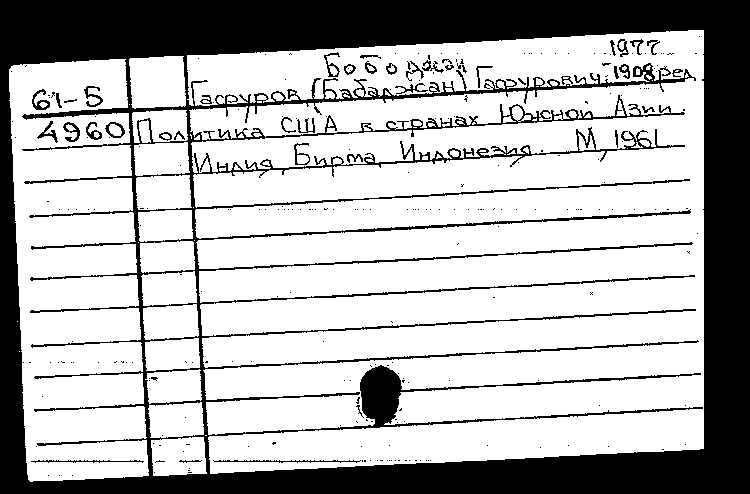 Бободжан 1977
61-5 Гафуров (Бабаджан) Гафурович, 1908 ред.
4960 Политика США в странах Южной Азии.
Индия, Бирма, Индонезия. М, 1961